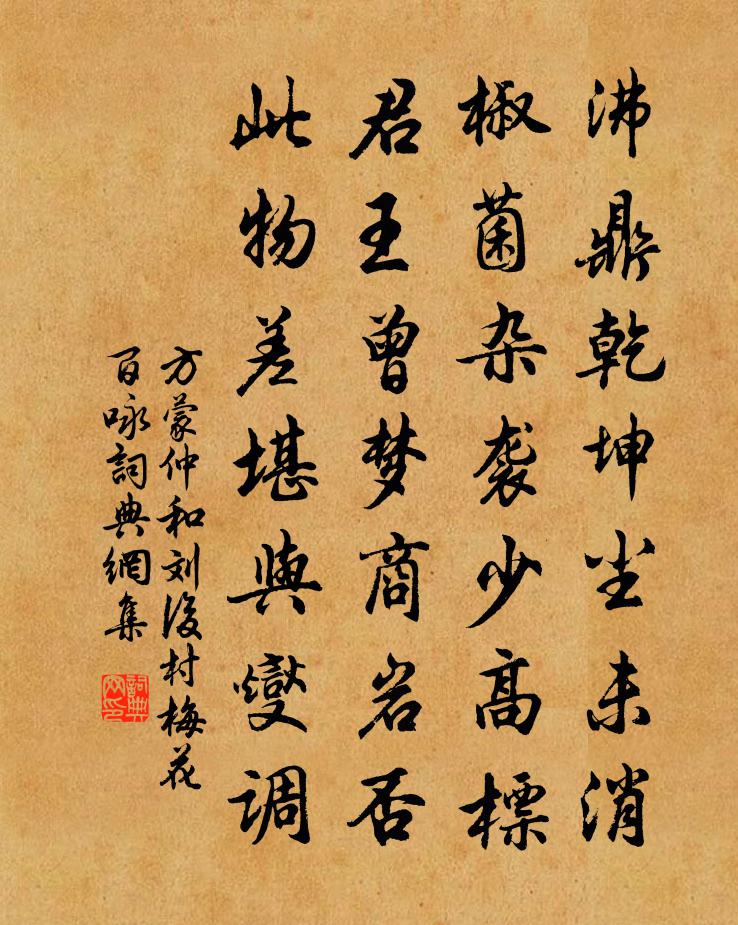 沸鼎乾坤尘未消
椒菌杂袭少高標
君王曾梦商岩否
此物差堪與燮调
方蒙仲和刘後村梅花
百咏詞典網集
詞典
网印